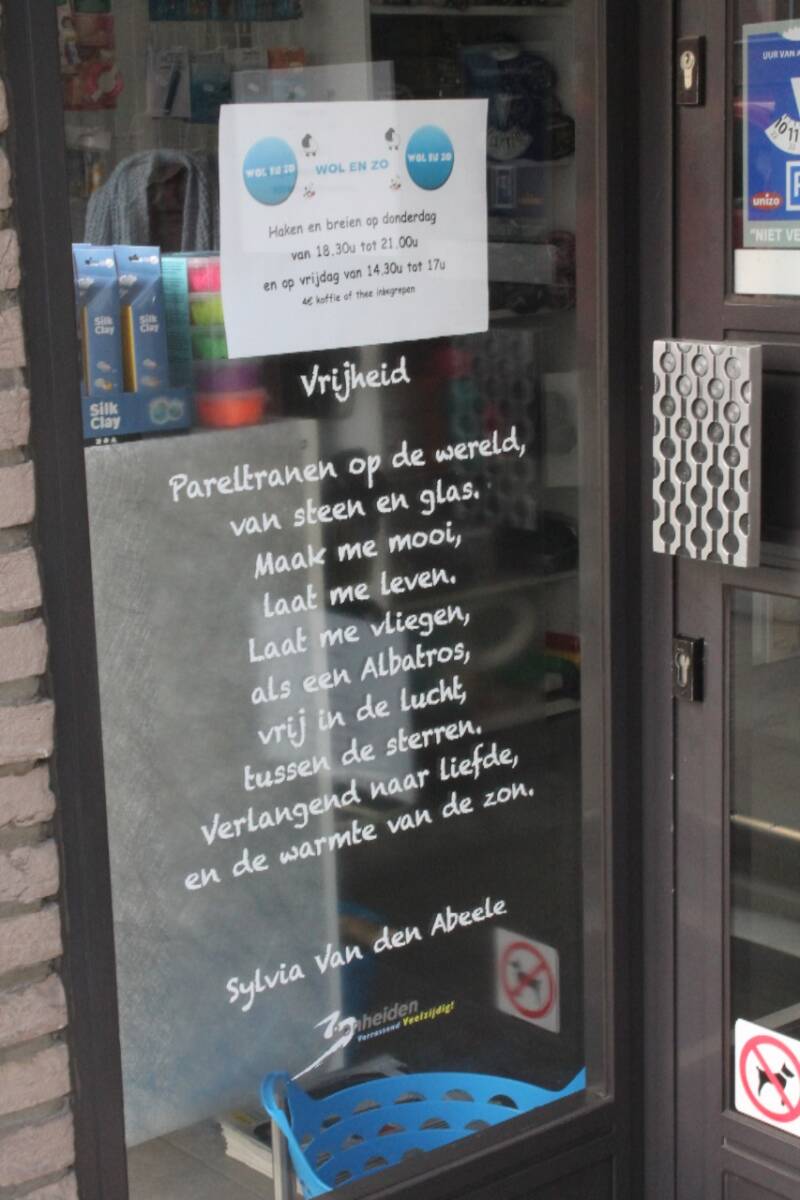 WOL EN ZO
WOL EN ZO
WOL EN ZO
Haken en breien op donderdag
van 18.30u tot 21.00u
en op vrijdag van 14.30u tot 17u
4€ koffie of thee inbegrepen
Silk Clay
Silk Clay
Silk Clay
Vrijheid
Pareltranen op de wereld,
van steen en glas.
Maak me mooi,
laat me leven.
Laat me vliegen,
als een Albatros,
vrij in de lucht,
tussen de sterren.
Verlangend naar liefde,
en de warmte van de zon.
Sylvia Van den Abeele
Zonheiden
Verrassend Veelzijdig!
UUR VAN
10 11
unizo
"NIET VE